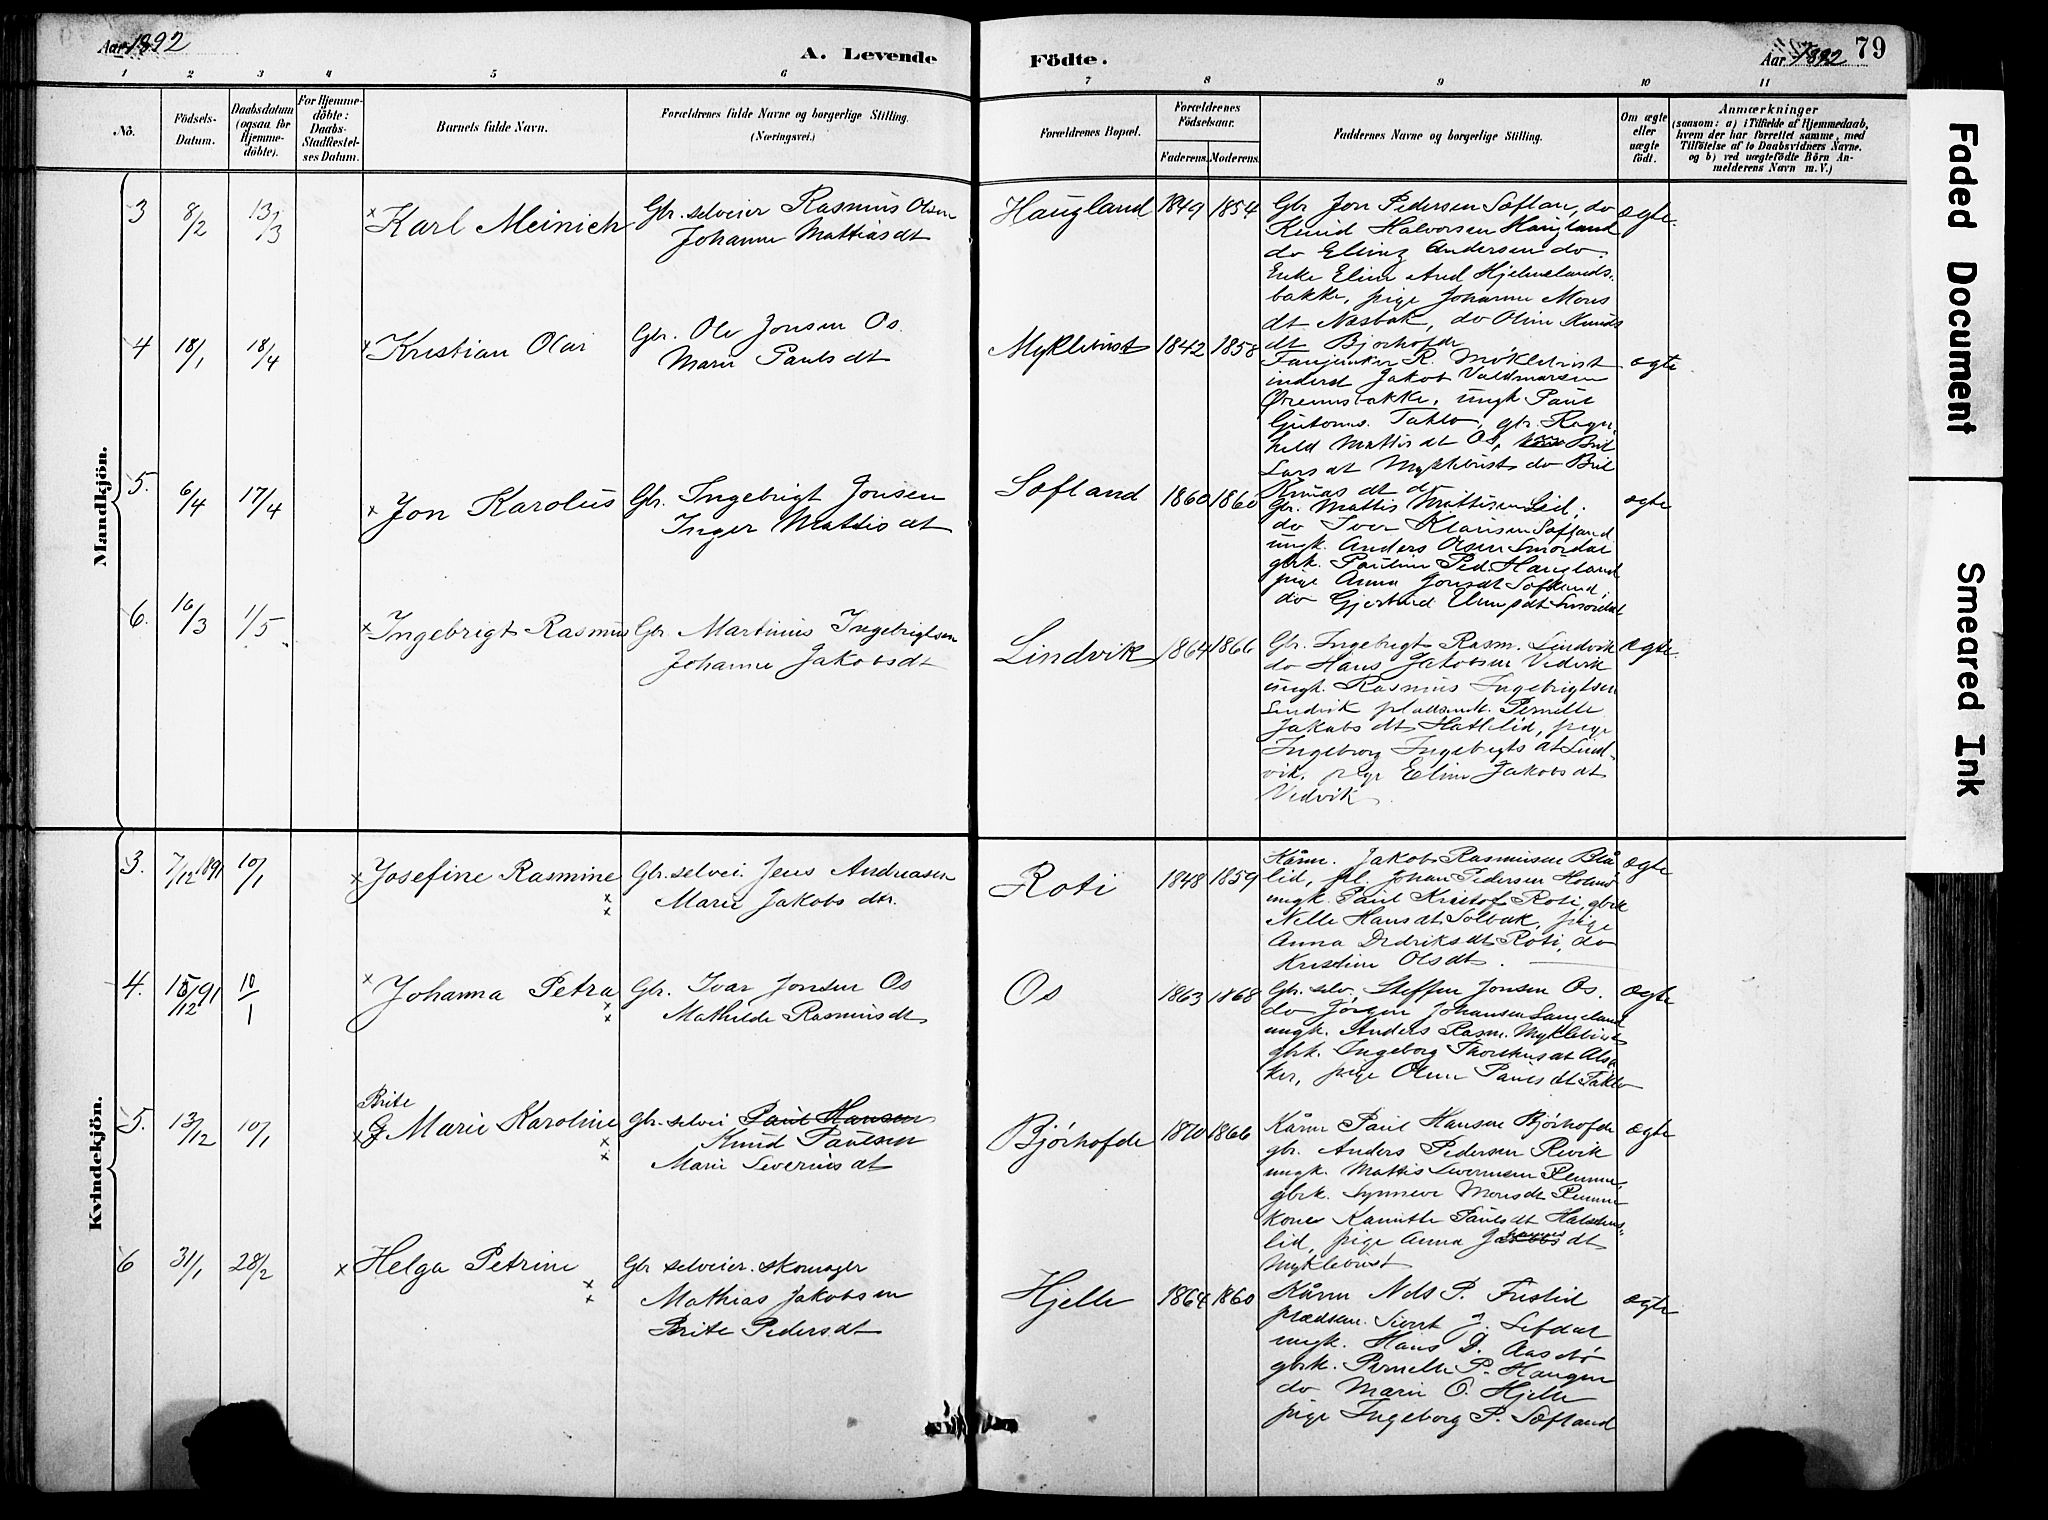 Aar 1892
A. Levende
Födte.
Aar 1892
79
1 2 3 4 5 6 7 8 9 10 11
No.
Födsels-
Datum.
Daabsdatum
(ogsaa for
Hjemme-
döbte).
For Hjemme-
döbte:
Daabs-
Stadfæstel-
ses Datum.
Barnets fulde Navn.
Forældrenes fulde Navne og borgerlige Stilling.
(Næringsvei.)
Forældrenes Bopæl.
Forældrenes
Födselsaar.
Faderens. Moderens.
Faddernes Navne og borgerlige Stilling.
Om ægte
eller
uægte
födt.
Anmærkninger
(saasom: a) i Tilfælde af Hjemmedaab,
hvem der har forrettet samme, med
Tilföielse af to Daabsvidners Navne.
og b) ved uægtefödte Börn An-
melderens Navn m. V.)
Mandkjön.
3 8/2 13/3 × Karl Meinich
Gbr. selveier Rasmus Olsen
Johanne Mattias dt
Haugland 1849 1854
Gbr Jon Pedersen Sæfland, do
Knud Halvorsen Haugland
do Elling Andersen do.
Enke Eline And Hjelmelands-
bakke, pige Johanne Mons
dt Nesbak, do Oline Knuds
dt Bjørhofde
ægte.
4 18/1 18/4 × Kristian Olai
Gbr. Ole Jonsen Os.
Marie Pauls dt
Myklebust 1842 1858
Fanjunker R. Møklebust
inderst Jakob Valdmarsen
ungk Paul
Guttorms. Taklo, gbr. Ragn-
hild Mattis dt Os, Brit
Lars dt Myklebust do Brit
Knuds dt do
ægte
5. 6/4 17/4 × Jon Karolus
Gbr. Ingebrigt Jonsen
Inger Mattis dt
Sæfland 1860 1860
Gbr. Mattis Mattisen Lid,
do Iver Klausen Sæfland
ungk. Anders Olsen Smørdal
gbrk. Pauline Ped. Haugland
pige Anna Jonsdt Sæfland,
do Gjertrud dt Smørdal
ægte
6. 16/3 1/5 × Ingebrigt Rasmus
Gbr. Martinus Ingebrigtsen
Johanne Jakobsdt
Lindvik 1864 1866
Gbr. Ingebrigt Rasm. Lindvik
do Hans Jakobsen Vedvik
ungk. Rasmus Ingebrigtsen
Lindvik pladsmk. Pernille
Jakobs dt Hatlelid, pige
Ingeborg Ingebrigts dt Lind-
vik, pige Eline Jakobs dt
Vedvik.
ægte.
Kvindekjön.
3. 7/12 1891 10/1 × Josefine Rasmine ××
Gbr. selvei. Jens Andreasen
Marie Jakobs dtr.
Roti 1848 1859
Kårm. Jakob Rasmusen Blå-
lid, pl. Johan Pedersen
ungk. Paul Kristof. Roti, gbrk
Nille Hansdt Solbak, pige
Anna Didriks dt Roti, do
Kristine Ols dt.
ægte
4. 15/12 91 10/1 × Johanna Petra ××
Gbr. Ivar Jonsen Os
Mathilde Rasmus dt
Os 1863 1868
Gbr. selv. Steffen Jonsen Os.
do Jørgen Johansen
ungk. Anders Rasm. Myklebust
gbrk. Ingeborg dt Alsa-
ker, pige Oline Pauls dt Taklo
ægte
5. 13/12 10/1 × Brite
G Marie Karoline ××
Gbr. selvei Paul Hansen
Knud Paulsen
Marie Severins dt
Bjørhofde 1870 1866
Kårm Paul Hansen Bjørhofde
gbr. Anders Pedersen Revik
ungk. Mattis Severinsen Remme,
gbrk. Synneve Monsdt Remme
kone Kamilla Pauls dt
lid, pige Anna dt
Myklebust
ægte
6 31/1 28/2 × Helga Petrine ××
Gbr selveier. skomager
Mathias Jakobsen
Brite Peders dt
Hjelle 1864 1860
Kårm Nels P. Fristid
pladsm. Sivert J. Lefdal
ungk. Hans D. Aasebø
gbrk. Pernille P. Haugen
do Marie O. Hjelle
pige Ingeborg P. Sæfland
ægte
Faded Document
Smeared Ink